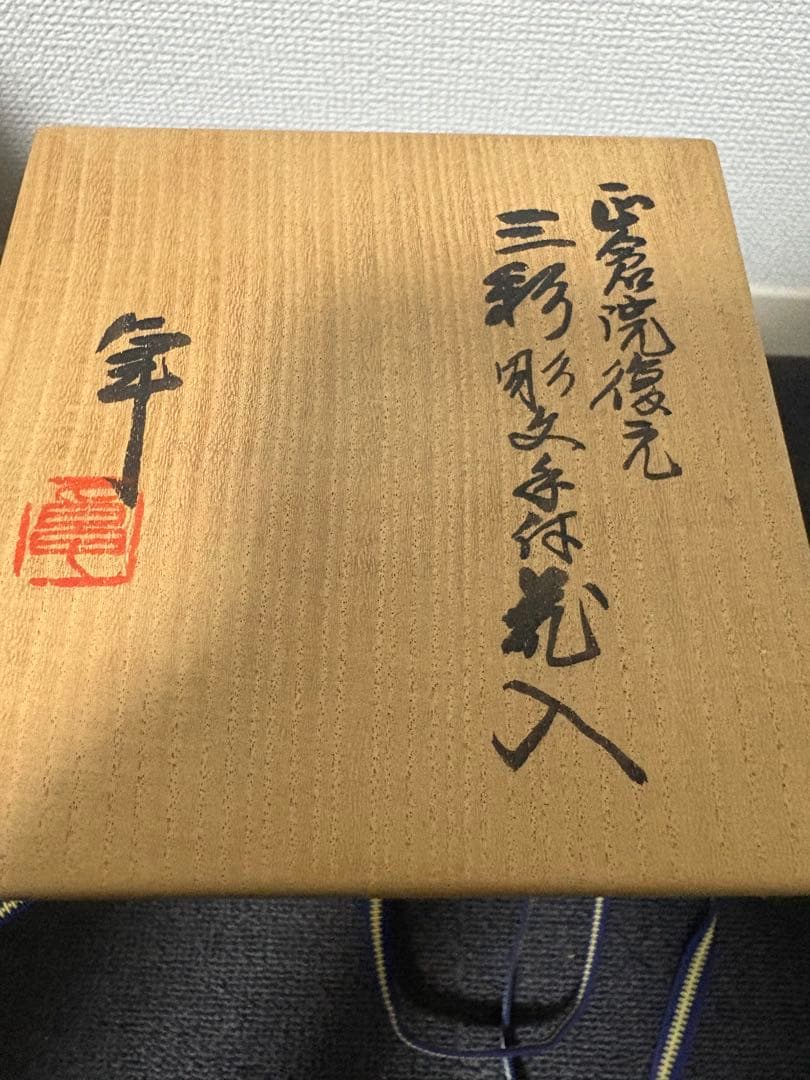 正倉院復元
三彩彫文手付花入